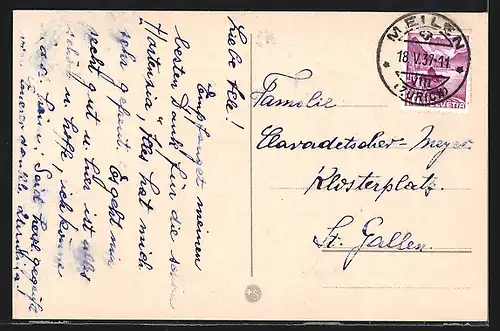 MEILEN
18.V.37-11
VIII
(ZÜRICH)
HELVETIA
Familie
Clavadetscher-Meyer
Klosterplatz.
St. Gallen.
Liebe Alle!
Empfanget meinen
besten Dank für die schöne
Hortensia, Alles hat mich
sehr gefreut. Es geht mir
recht gut u. hier ist alles
schön u. hoffe, ich könne
heim. Seid herzl. gegrüßt